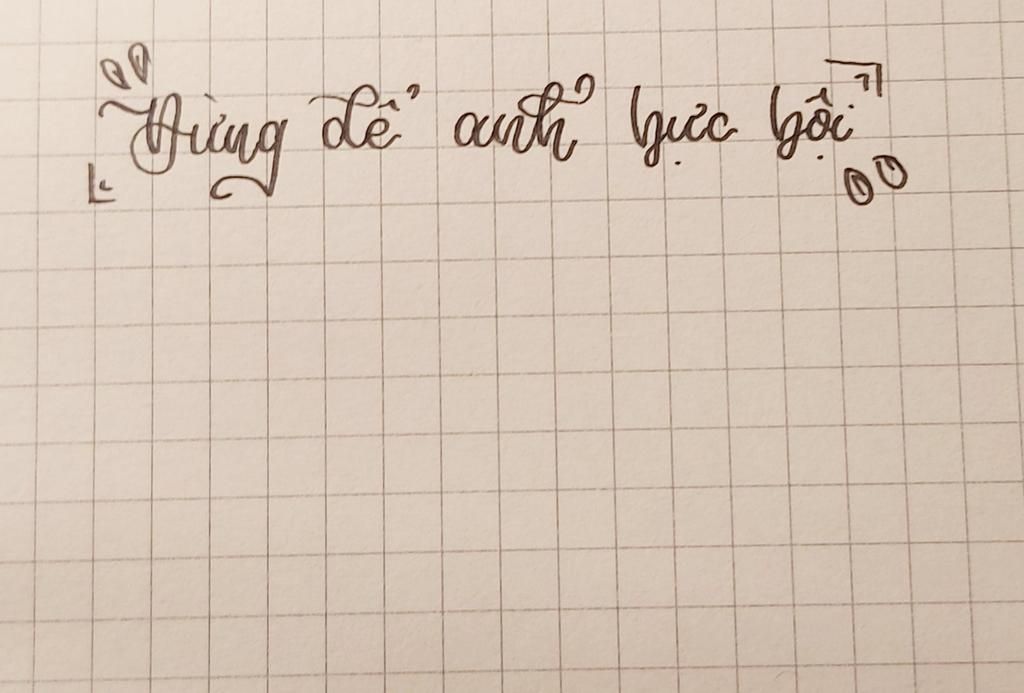 "Đừng để ảnh bực bội"